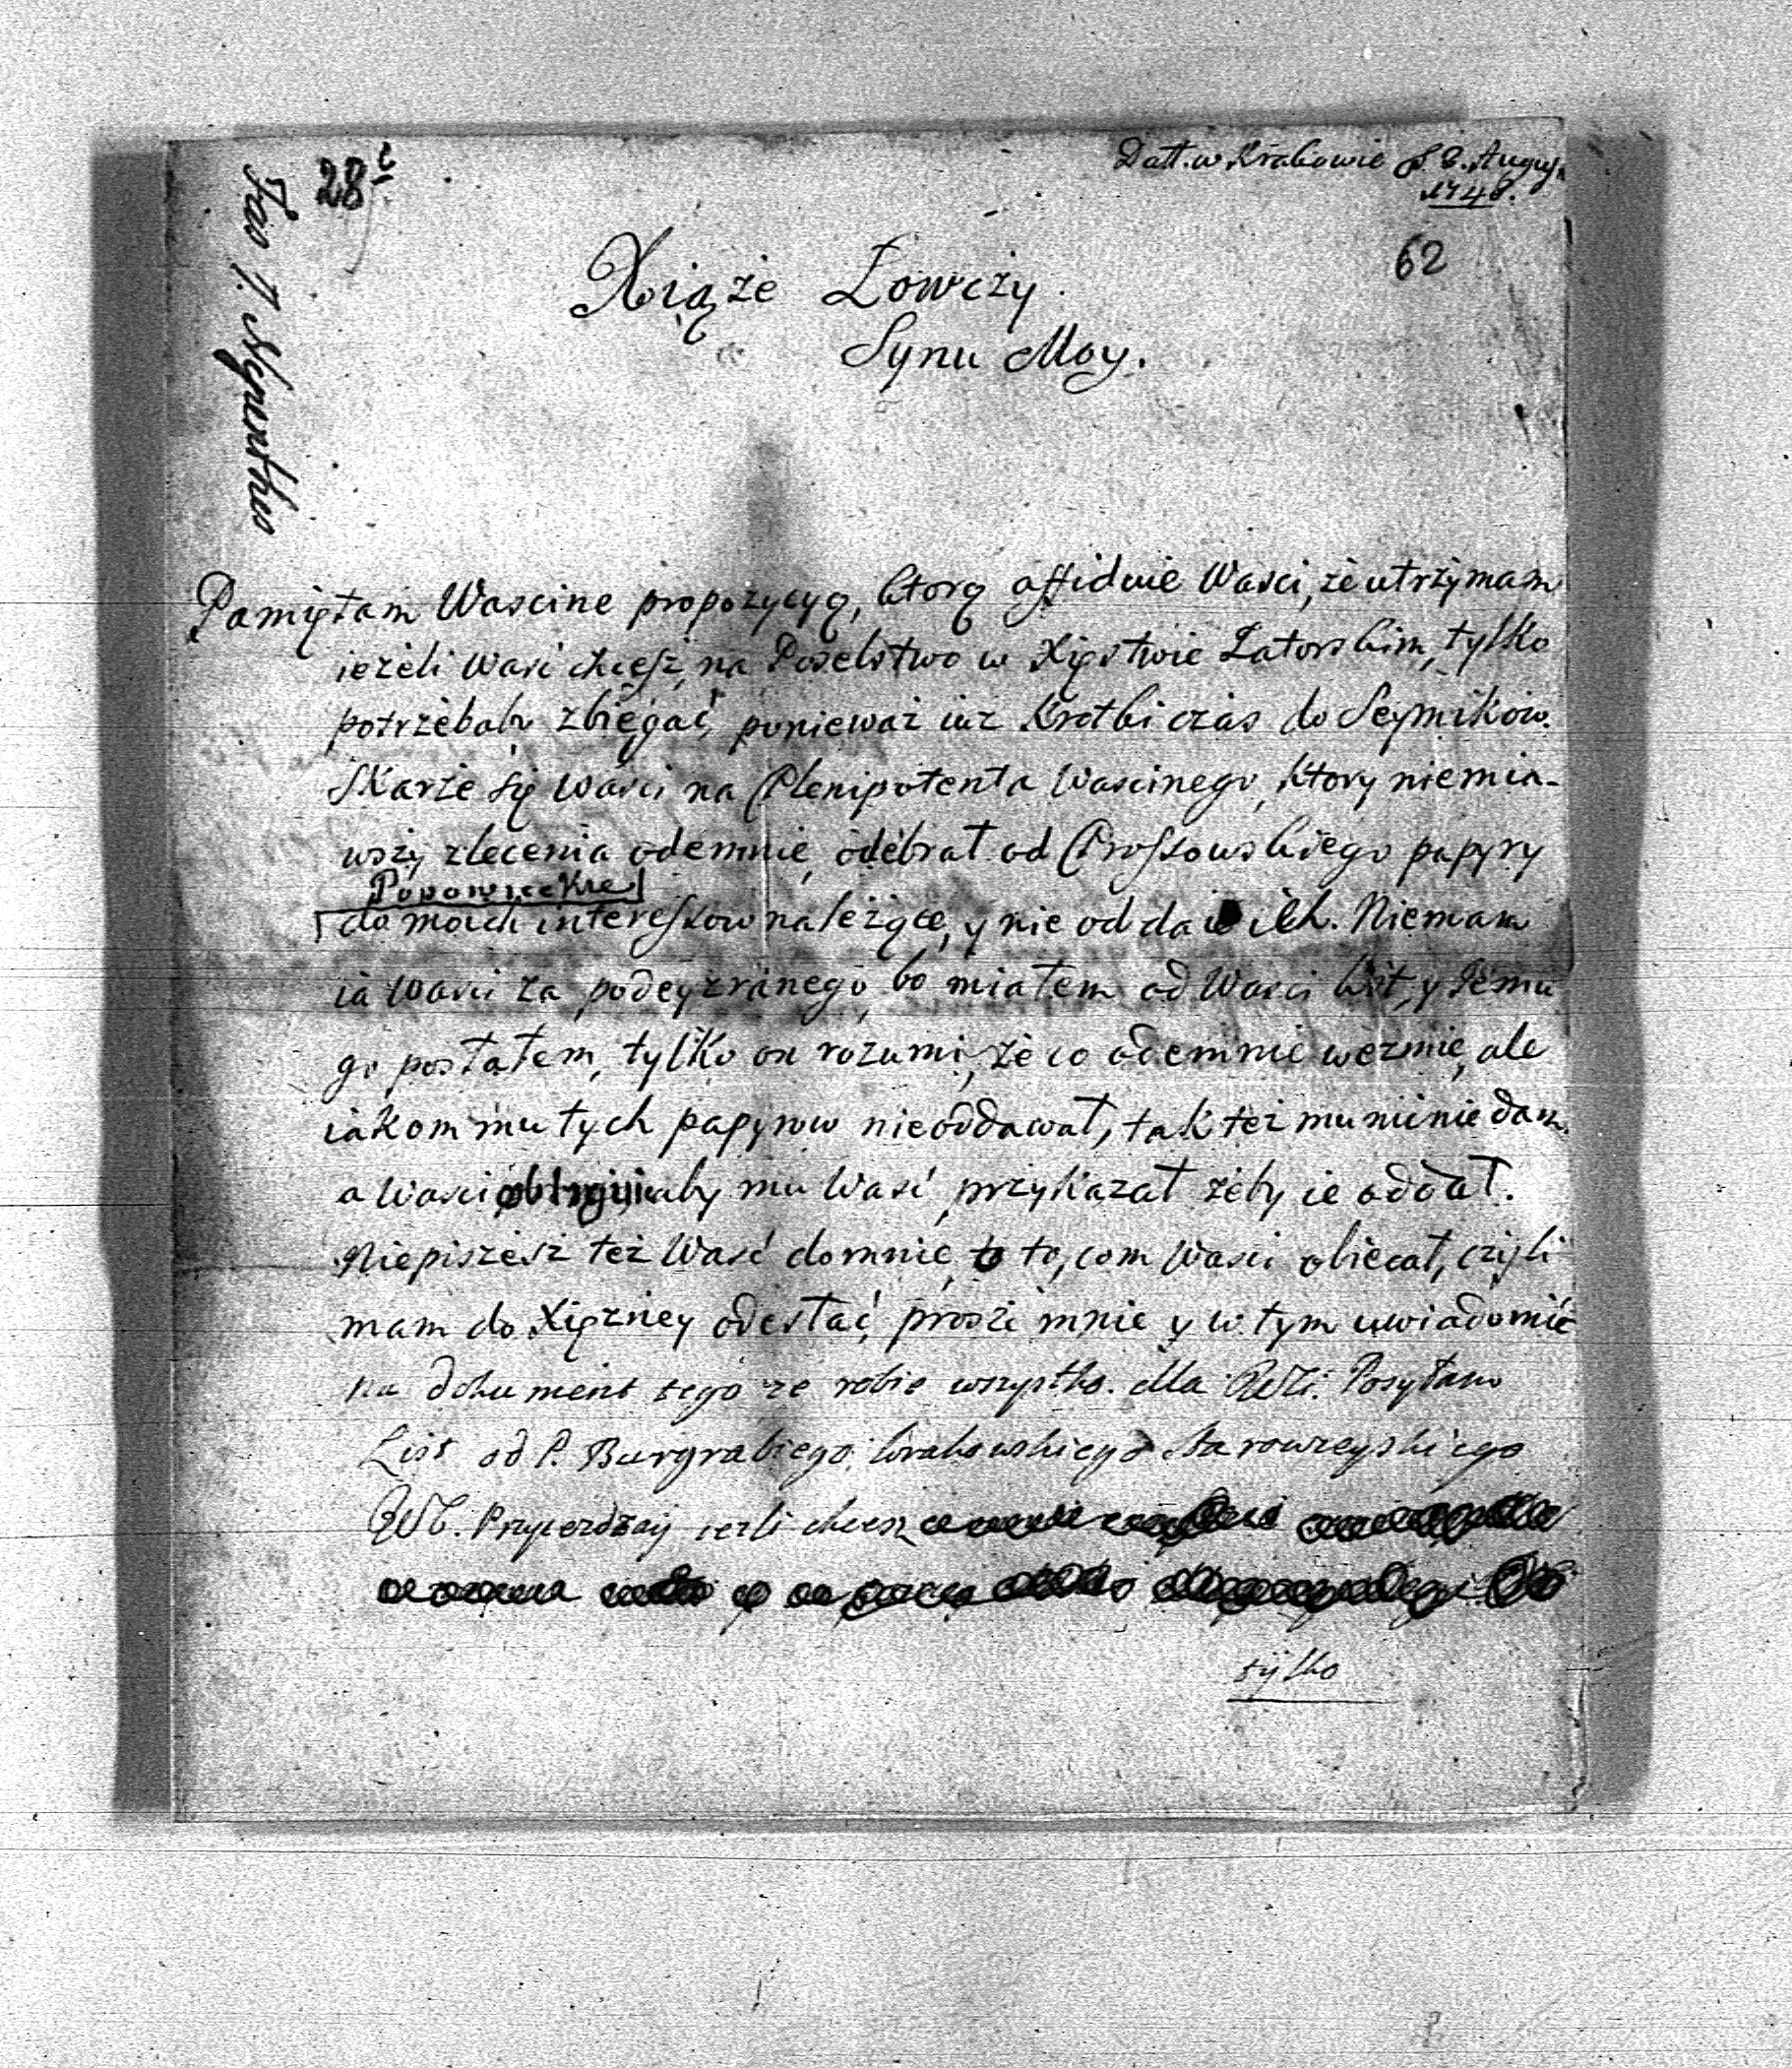 28
Datt. w Krakowie d. 8. Augus.
1748.
62
Xiąże Łowczy.
Synu Moy.
Pamiętam Wascine propozycyą, ktorą affiduie Wasci, że utrzymam
ieżeli Wasc chcesz, na Poselstwo w Xięstwie Zatorskim, tylko
potrzebaby zbiegać, ponieważ iuz krotki czas do Seymikow.
Skarże się Wasci na Plenipotenta Wascinego, ktory niemia-
wszy zlecenia odemnie, odebrał od papyry
do moich interessow należące, y nie oddaie ich. Niemam
ia Wasci za podeyzranego, bo miałem od Wasci list, y Jemu
go posłałem, tylko on rozumi, że co odemnie wezmie, ale
iakom mu tych papyrow nieoddawał, tak też mu nic nie dam.
a Wasci obliguię aby mu Wasć przykazał żeby ie oddał.
Niepiszesz też Wasć do mnie, to, com Wasci obiecał, czyli
mam do Xięzney odesłać, prosze mnie y w tym uwiadomić
na dokument tego ze robie wszystko dla Posyłam
List od P. Burgrabiego krakowskiego
chcesz
tylko